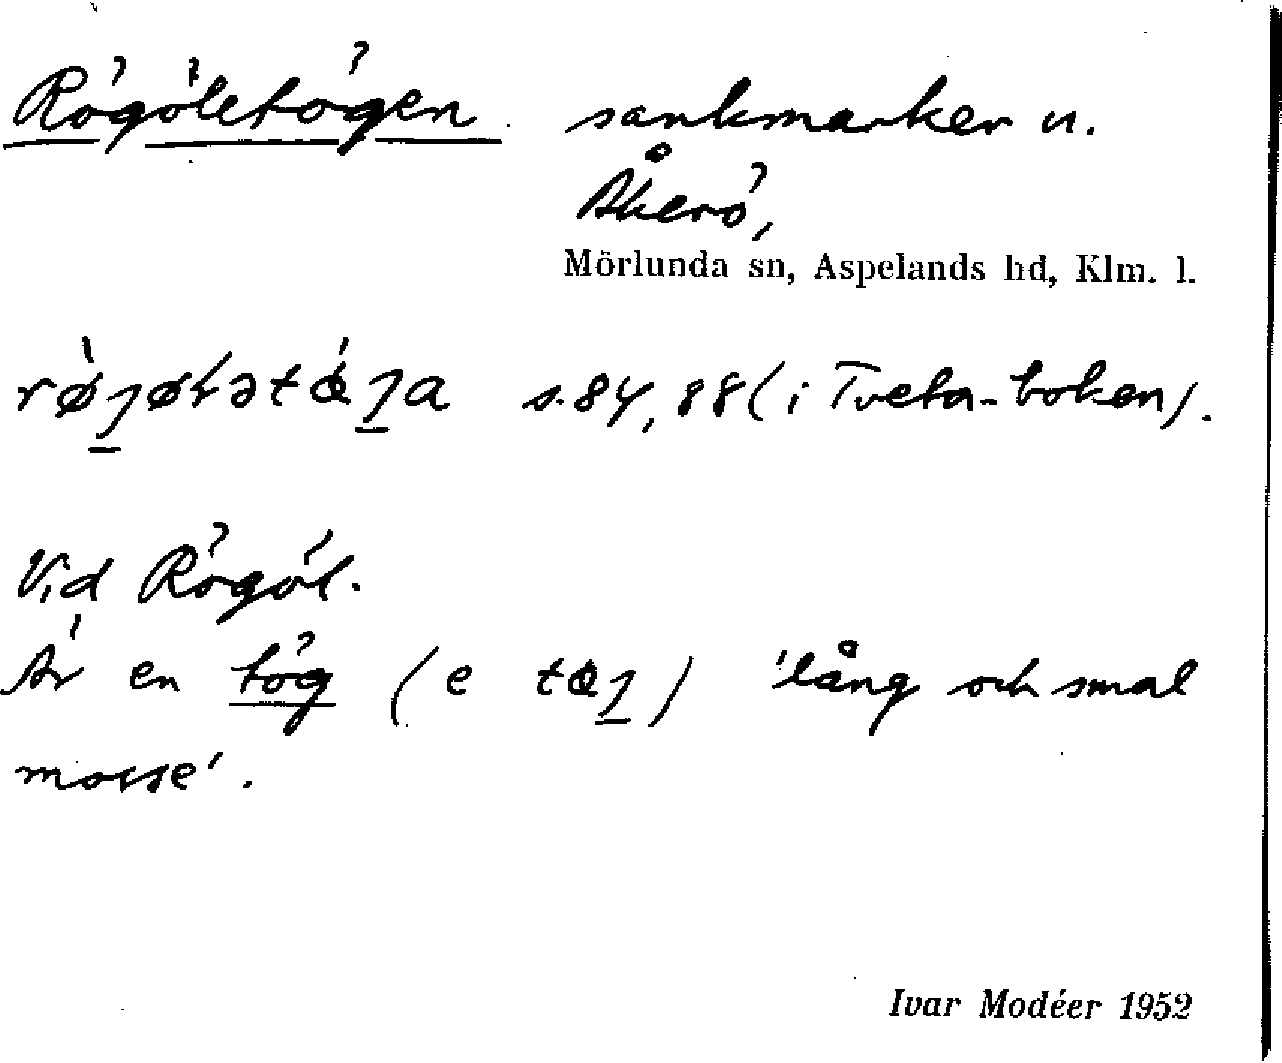 Rögöletögen sankmarker u.
Åkerö,
Mörlunda sn, Aspelands hd, Klm. l.
s. 84, 88 (i Tveta-boken).
Vid Rögöl.
Är en tög (e 'lång och smal
mosse'.
Ivar Modéer 1952